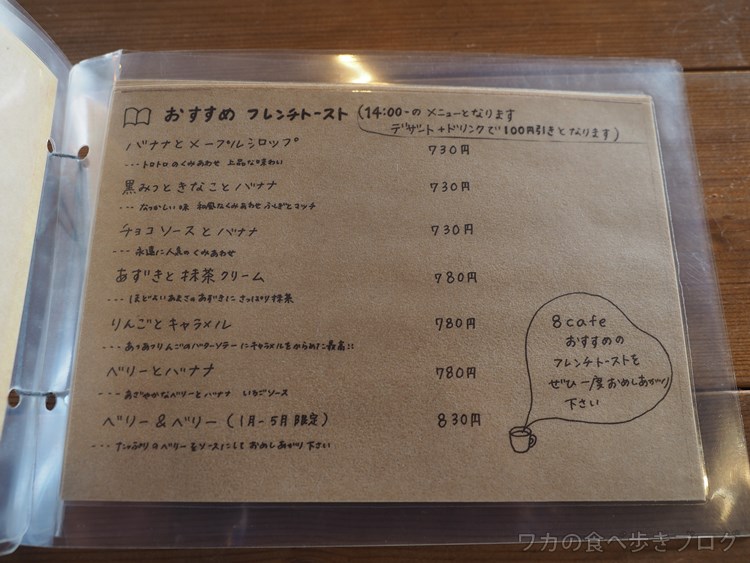 おすすめ フレンチトースト (14:00-の メニューとなります
デザート+ドリンクで100円引きとなります)
バナナとメープルシロップ 730円
--- トロトロのくみあわせ 上品な味わい
黒みつときなことバナナ 730円
--- なつかしい味 和風なくみあわせ ふしぎとマッチ
チョコソースとバナナ 730円
--- 永遠に人気のくみあわせ
あずきと抹茶クリーム 780円
--- ほどよいあまさのあずきに さっぱり抹茶
りんごとキャラメル 780円
--- あつあつりんごのバターソテーにキャラメルをからめた最高!!
ベリーとバナナ 780円
--- あざやかなベリーとバナナ いちごソース
ベリー&ベリー (1月-5月限定) 830円
--- たっぷりのベリーをソースにして おめしあがり下さい
8cafe
おすすめの
フレンチトーストを
ぜひ一度おめしあがり
下さい
ワカの食べ歩きブログ